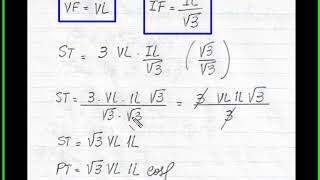 VF = VL IF = IL/√3
ST = 3 VL · IL/√3 (√3/√3)
ST = 3 · VL · IL √3 / √3 · √3 = 3 VL IL √3 / 3
ST = √3 VL IL
PT = √3 VL IL cosφ